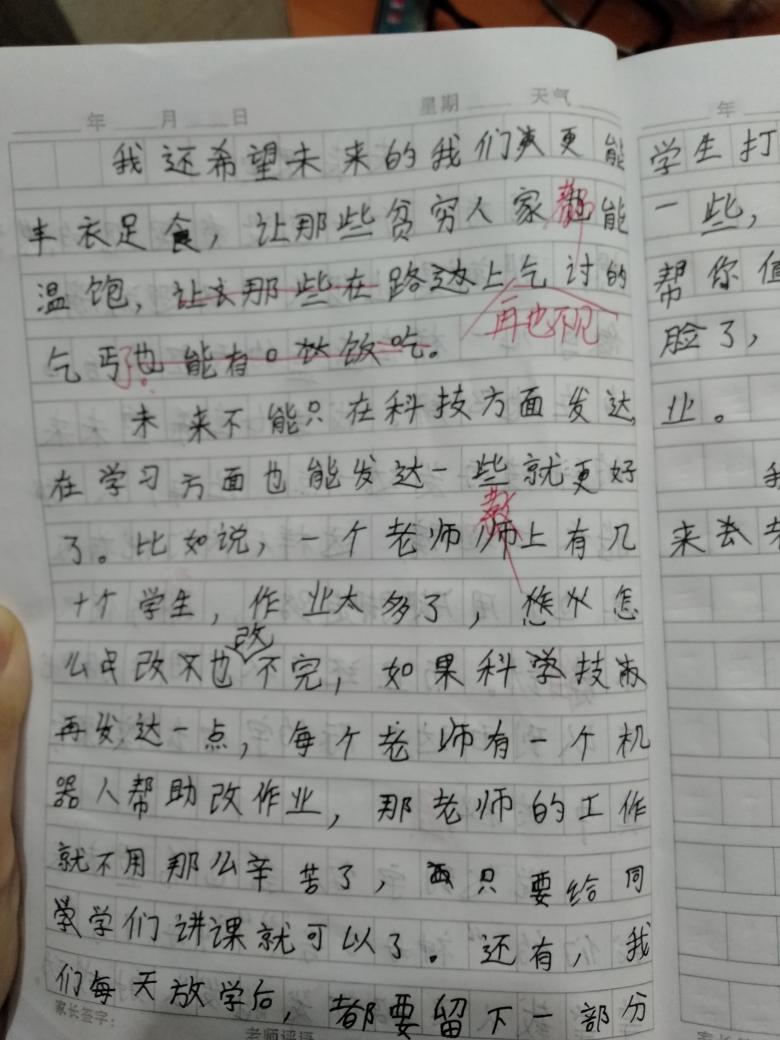 年 月 日 星期 天气
我还希望未来的我们更能
丰衣足食，让那些贫穷人家都能
温饱，让那些在路边上乞讨的
再也不见
乞丐了。也能有口饭吃。
未来不能只在科技方面发达,
在学习方面也能发达一些就更好
了。比如说，一个老师教上有几
十个学生，作业太多了，怎
么改也改不完，如果科学技术
再发达一点，每个老师有一个机
器人帮助改作业，那老师的工作
就不用那么辛苦了，只要给同
学们讲课就可以了。还有，我
们每天放学后，都要留下一部分
家长签字：
老师评语
年
学生打
一些，
帮你值
脸了，
业。
我
来去
家长签